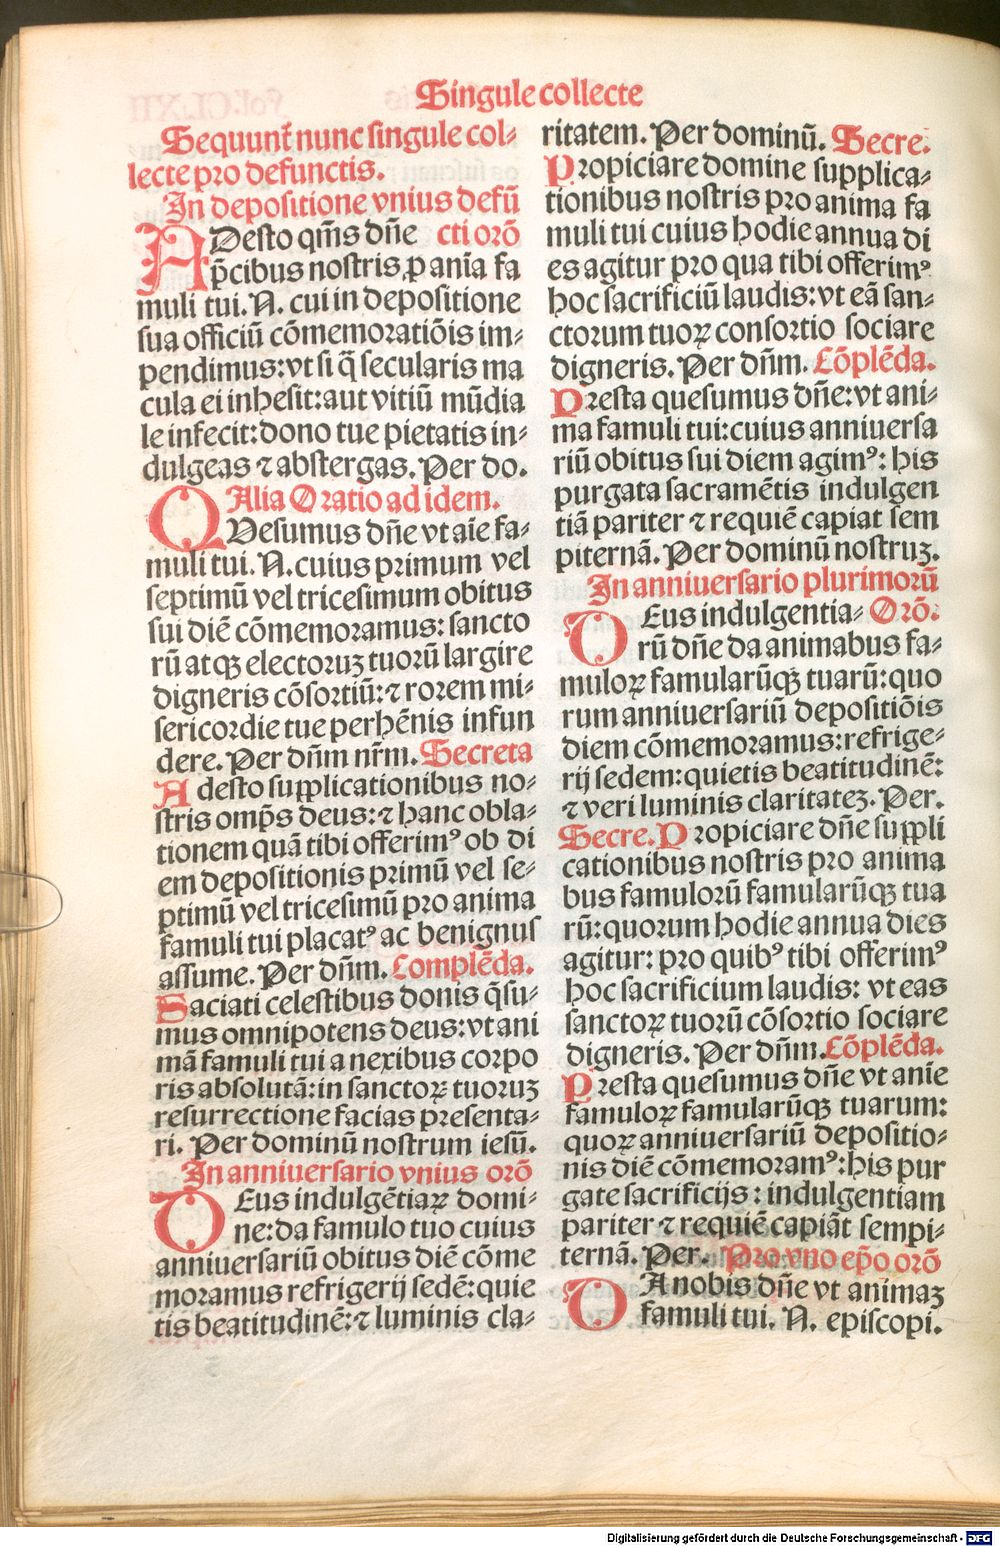 Singule collecte
Sequunt̃ nunc singule col⸗
lecte pro defunctis.
In depositione vnius defũ
ADesto qm̃s dñe cti orõ
p̃cibus nostris ꝓ anĩa fa
muli tui. N. cui in depositione
sua officiũ cõmemoratiõis im⸗
pendimus: vt si q̃ secularis ma
cula ei inhesit: aut vitiũ mũdia
le infecit: dono tue pietatis in⸗
dulgeas ⁊ abstergas. Per do.
Alia Oratio ad idem.
QVesumus dñe vt aĩe fa⸗
muli tui. N. cuius primum vel
septimũ vel tricesimum obitus
sui diẽ cõmemoramus: sancto
rũ atqꝫ electoruꝫ tuorũ largire
digneris cõsortiũ: ⁊ rorem mi⸗
sericordie tue perhẽnis infun
dere. Per dñm nr̃m. Secreta
Adesto supplicationibus no⸗
stris omp̃s deus: ⁊ hanc obla⸗
tionem quã tibi offerimꝰ ob di
em depositionis primũ vel se⸗
ptimũ vel tricesimũ pro anima
famuli tui placatꝰ ac benignus
assume. Per dñm. Complẽda.
Saciati celestibus donis q̃su⸗
mus omnipotens deus: vt ani
mã famuli tui a nexibus corpo
ris absolutã: in sanctoꝝ tuoruꝫ
resurrectione facias presenta⸗
ri. Per dominũ nostrum iesũ.
In anniuersario vnius orõ
DEus indulgẽtiaꝝ domi⸗
ne: da famulo tuo cuius
anniuersariũ obitus diẽ cõme
moramus refrigerij sedẽ: quie
tis beatitudinẽ: ⁊ luminis cla⸗
ritatem. Per dominũ. Secre.
Propiciare domine supplica⸗
tionibus nostris pro anima fa
muli tui cuius hodie annua di
es agitur pro qua tibi offerimꝰ
hoc sacrificiũ laudis: vt eã san⸗
ctorum tuoꝝ consortio sociare
digneris. Per dñm. Cõplẽda.
Presta quesumus dñe: vt ani⸗
ma famuli tui: cuius anniuersa
riũ obitus sui diem agimꝰ: his
purgata sacramẽtis indulgen
tiã pariter ⁊ requiẽ capiat sem
piternã. Per dominũ nostruꝫ.
In anniuersario plurimorũ
DEus indulgentia⸗ Orõ.
rũ dñe da animabus fa⸗
muloꝝ famularũqꝫ tuarũ: quo
rum anniuersariũ depositiõis
diem cõmemoramus: refrige⸗
rij sedem: quietis beatitudinẽ:
⁊ veri luminis claritateꝫ. Per.
Secre. Propiciare dñe suppli
cationibus nostris pro anima
bus famulorũ famularũqꝫ tua
rũ: quorum hodie annua dies
agitur: pro quibꝰ tibi offerimꝰ
hoc sacrificium laudis: vt eas
sanctoꝝ tuorũ cõsortio sociare
digneris. Per dñm. Cõplẽda.
Presta quesumus dñe vt anĩe
famuloꝝ famularũqꝫ tuarum:
quoꝝ anniuersariũ depositio⸗
nis diẽ cõmemoramꝰ: his pur
gate sacrificijs: indulgentiam
pariter ⁊ requiẽ capiãt sempi⸗
ternã. Per. Pro vno ep̃o orõ
DA nobis dñe vt animaꝫ
famuli tui. N. episcopi.
Digitalisierung gefördert durch die Deutsche Forschungsgemeinschaft - DFG